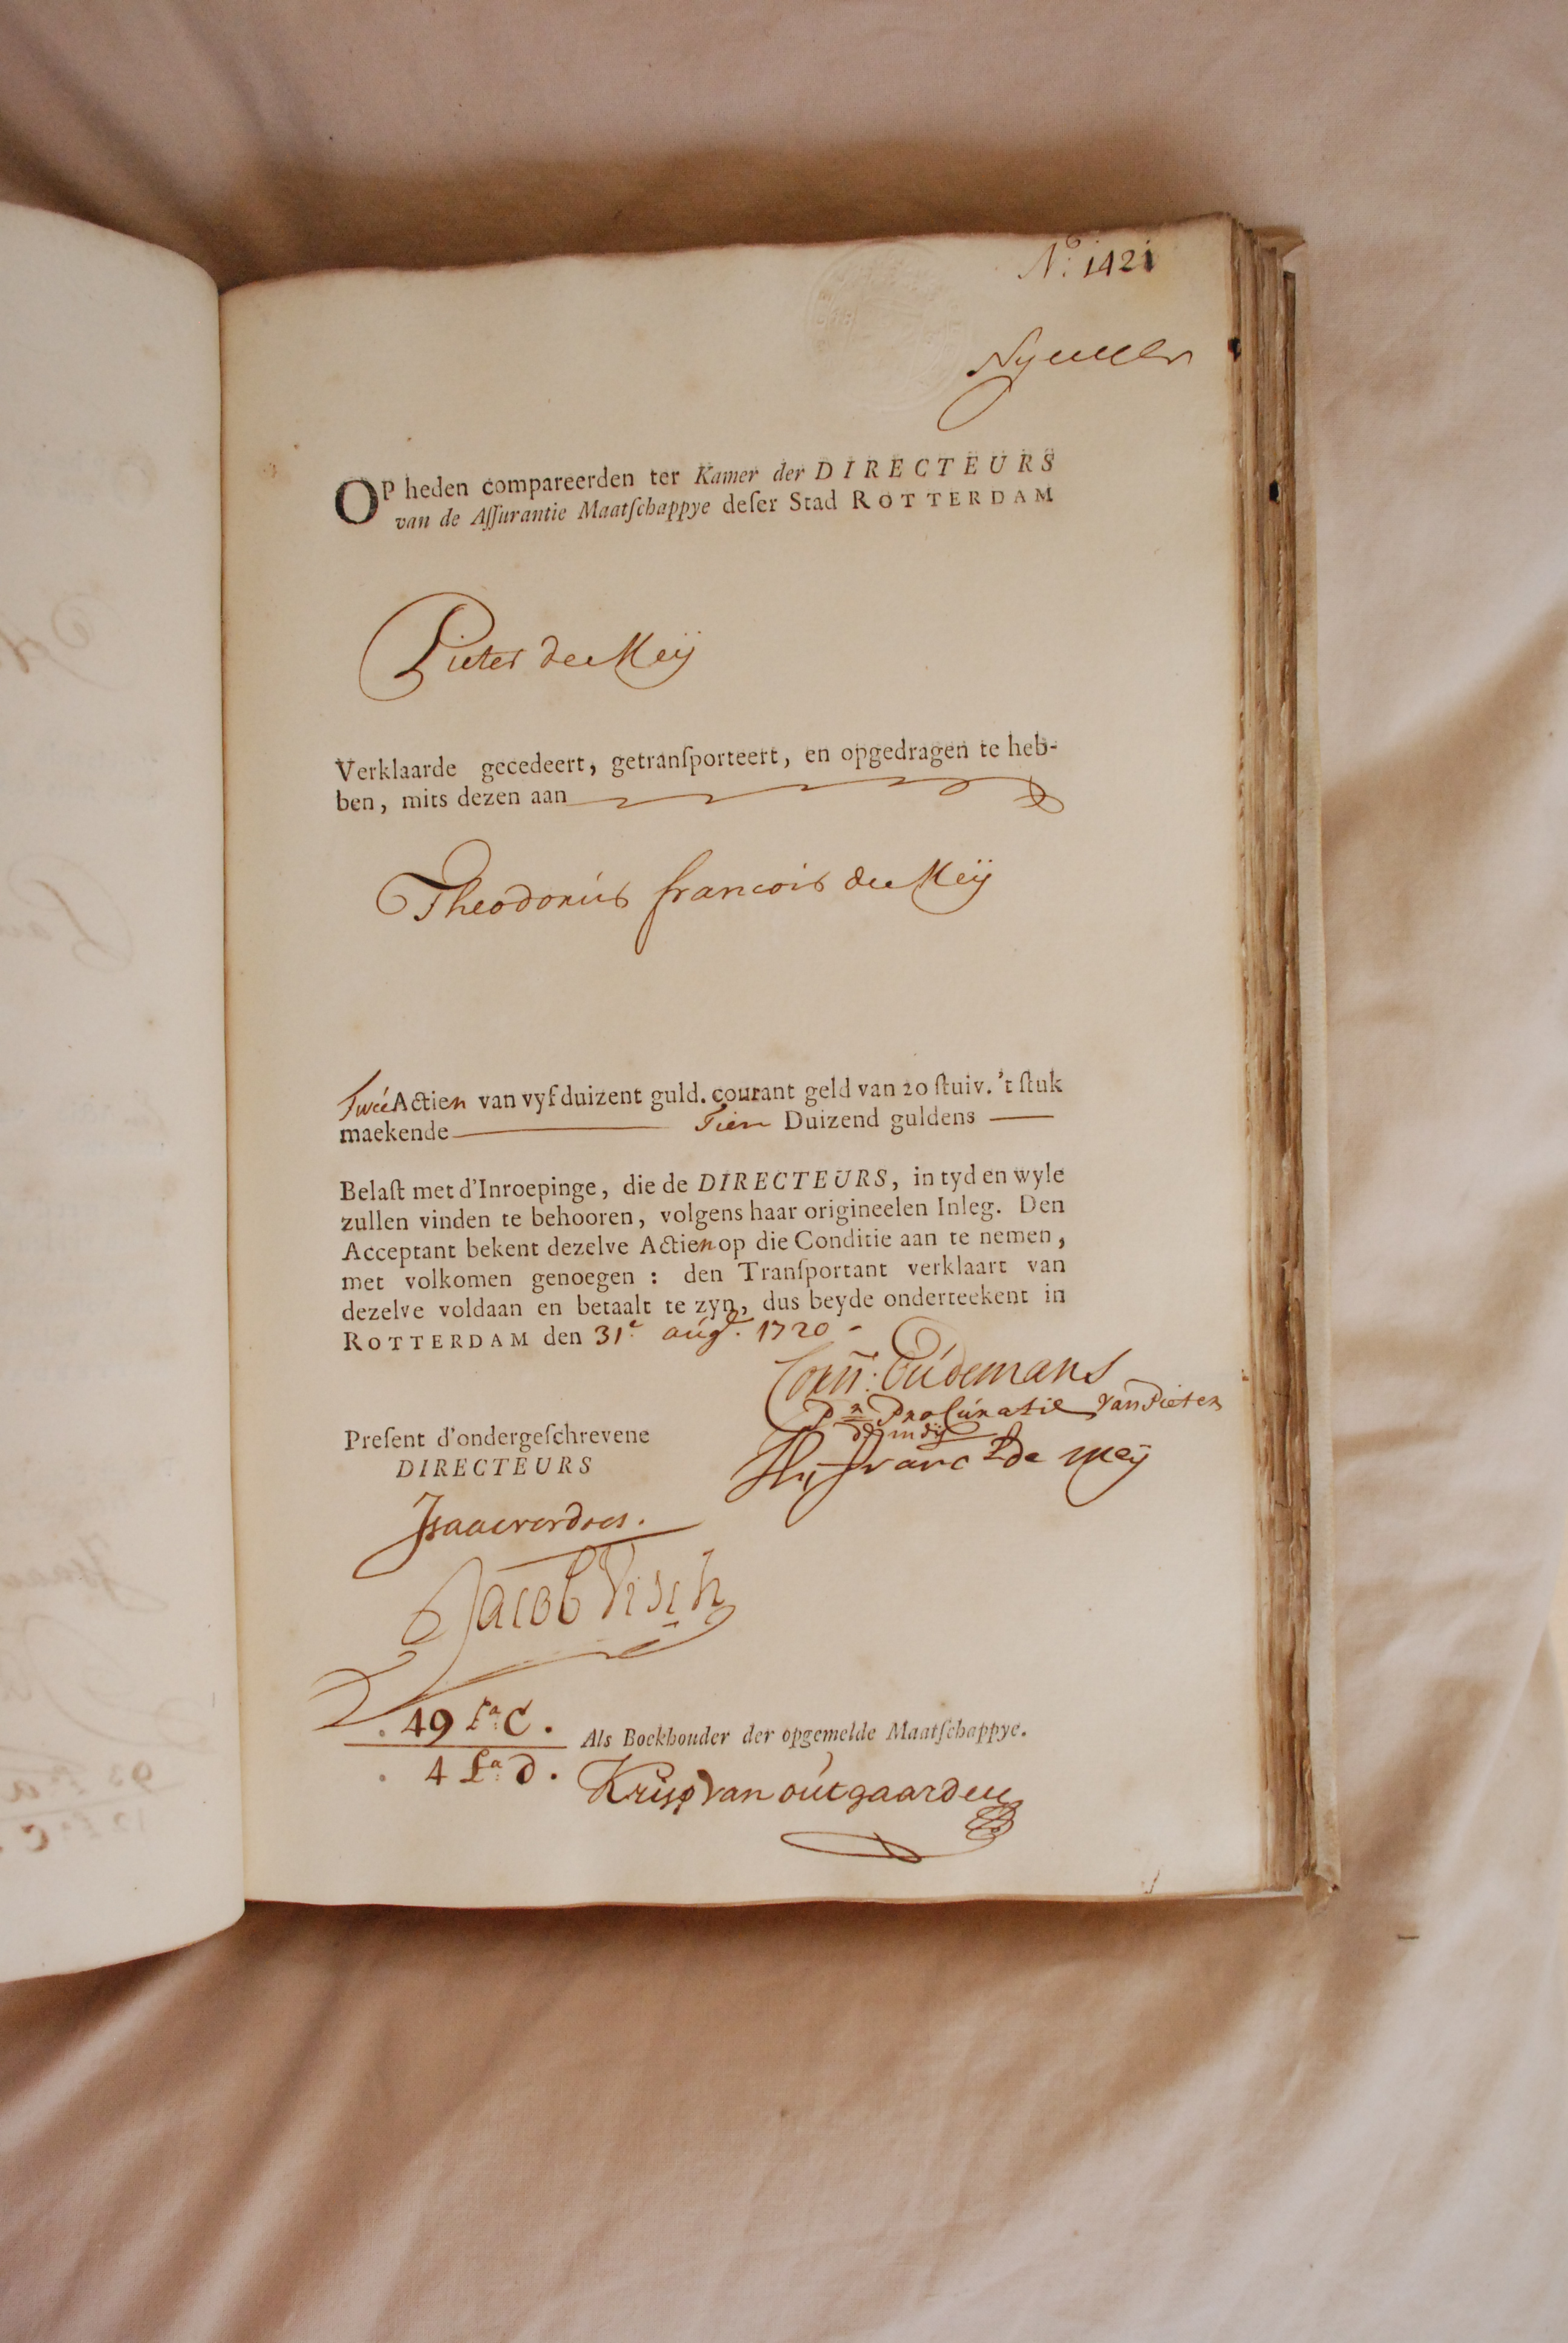 No: 1421
OP heden compareerden ter Kamer der DIRECTEURS
van de Aſſurantie Maatſchappye deſer Stad ROTTERDAM
Pieter de Meij
Verklaarde gecedeert, getranſporteert, en opgedragen te heb-
ben, mits dezen aan
Theodorús francois de Meij
Twee Actien van vyf duizent guld. courant geld van 20 ſtuiv. 't ſtuk
maekende Tien Duizend guldens
Belaſt met d'Inroepinge, die de DIRECTEURS, in tyd en wyle
zullen vinden te behooren, volgens haar origineelen Inleg. Den
Acceptant bekent dezelve Actien op die Conditie aan te nemen,
met volkomen genoegen : den Tranſportant verklaart van
dezelve voldaan en betaalt te zyn, dus beyde onderteekent in
ROTTERDAM den 31e aúg. 1720
Corn: Oúdemans
Procúratie van Pieter
Preſent d'ondergeſchrevene
DIRECTEURS
franc de meij
Isaac verdoes.
Jacob Visch
49 La C.
4 La D.
Als Boekhouder der opgemelde Maatſchappye.
Krisp van oútgaarden